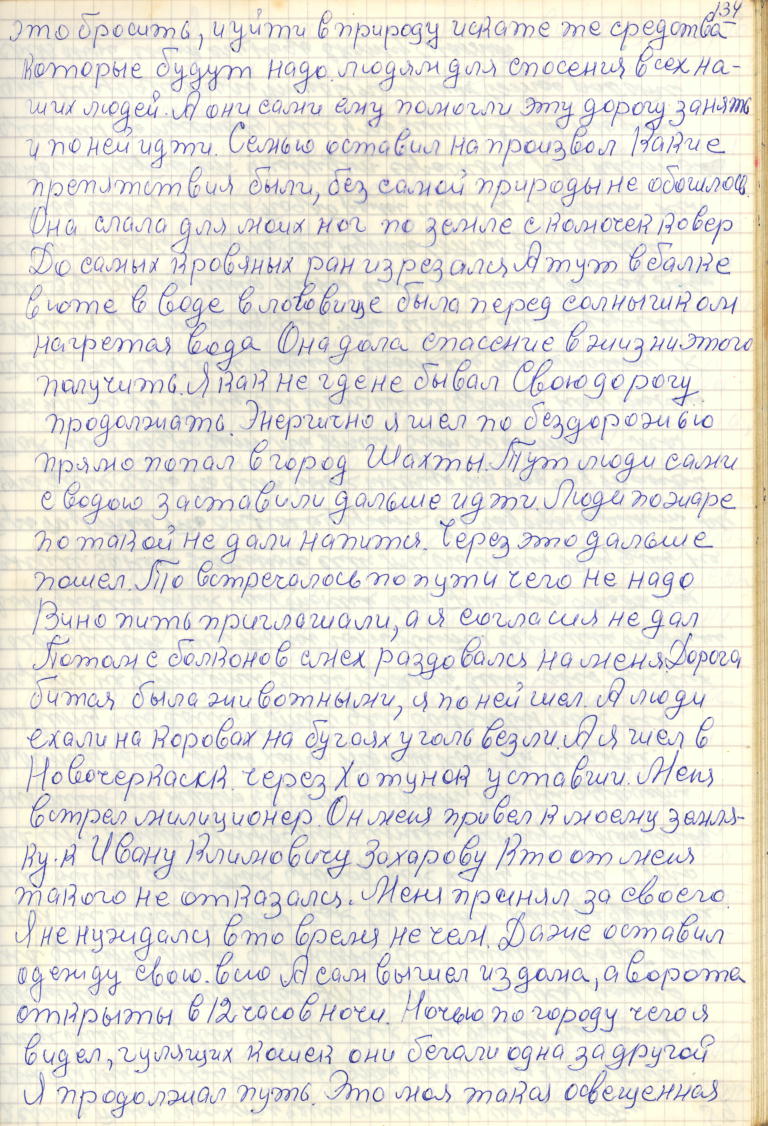 134
это бросить, и уйти в природу искате те средства
которые будут надо людям для спосения всех на-
ших людей. А они сами ему помогли эту дорогу занять
и по ней идти. Семью оставил на произвол Какие
препятствия были, без самой природы не обошлось.
Она слала для моих ног по земле с комочек ковер
До самых кровяных ран изрезался А тут в балке
в юте в воде в ловище была перед солнышком
нагретая вода Она дола спасение в жизни этого
получить. Я как не где не бывал Свою дорогу
продолжать. Энергично я шел по бездорожью
прямо попал в город Шахты. Тут люди сами
с водою заставили дальше идти. Люди по жаре
по такой не дали напится. Через это дальше
пошел. То встречалось по пути чего не надо
Вино пить приглошали, а я согласия не дал
Потом с болконов смех раздовался на меня. Дорога
битая была животными, я по ней шел. А люди
ехали на коровах на бугаях уголь везли. А я шел в
Новочеркаск через Хотунок уставши. Меня
встрел милиционер Он меня привел к моему земля-
ку. к Ивану Климовичу Захарову Кто от меня
такого не отказался. Меня принял за своего.
Я не нуждался в то время не чем. Даже оставил
одежду свою. всю А сам вышел из дома, а ворота
открыты в 12 часов ночи. Ночью по городу чего я
видел, гулящих кошек они бегали одна за другой
Я продолжал путь. Это моя такая освещенная